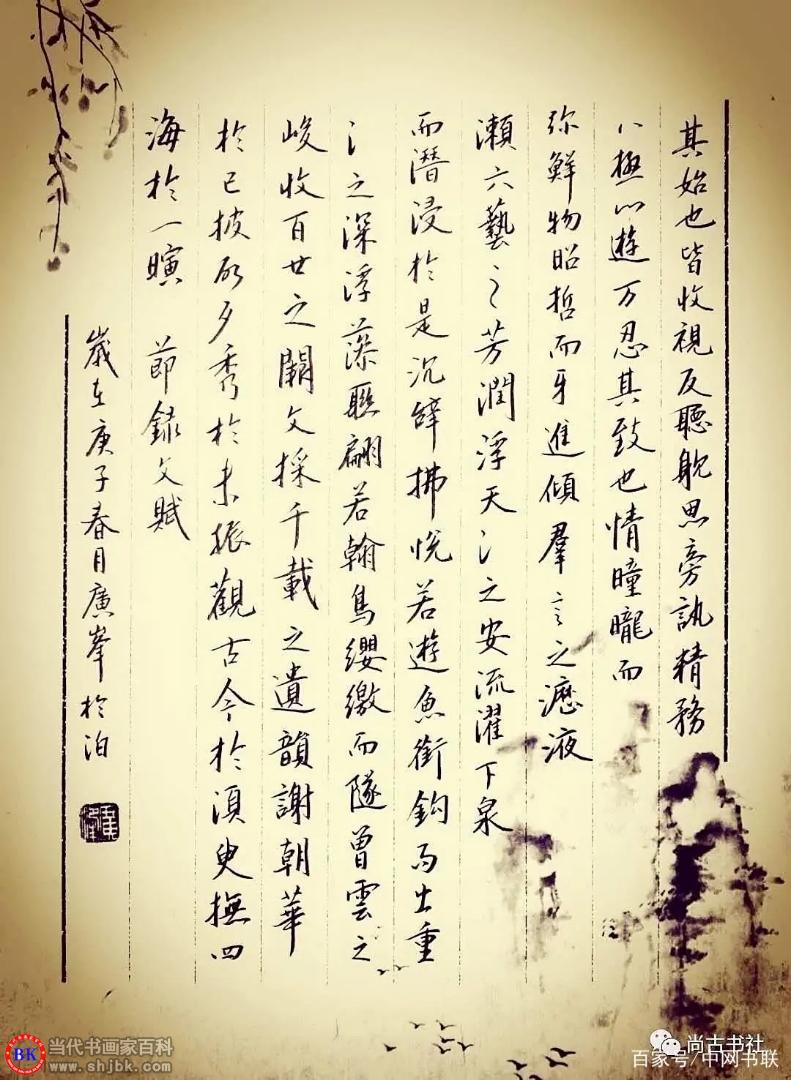 其始也皆收視反聽耽思旁訊精務
八極心遊万忍其致也情曈曨而
弥鮮物昭晢而牙進傾羣言之瀝液
瀨六藝之芳潤浮天氵之安流濯下泉
而潛浸於是沉辝拂悅若遊魚銜鈎而出重
氵之深浮藻聯翩若翰鳥纓繳而隧曾雲之
峻收百世之闕文採千載之遺韻謝朝華
於已披啟夕秀於未振觀古今於須臾撫四
海於一瞚 節録文賦
歲在庚子春月廣峯於泊
BK 当代书画家百科
www.shjbk.com
尚古书社
百家号/中网书联